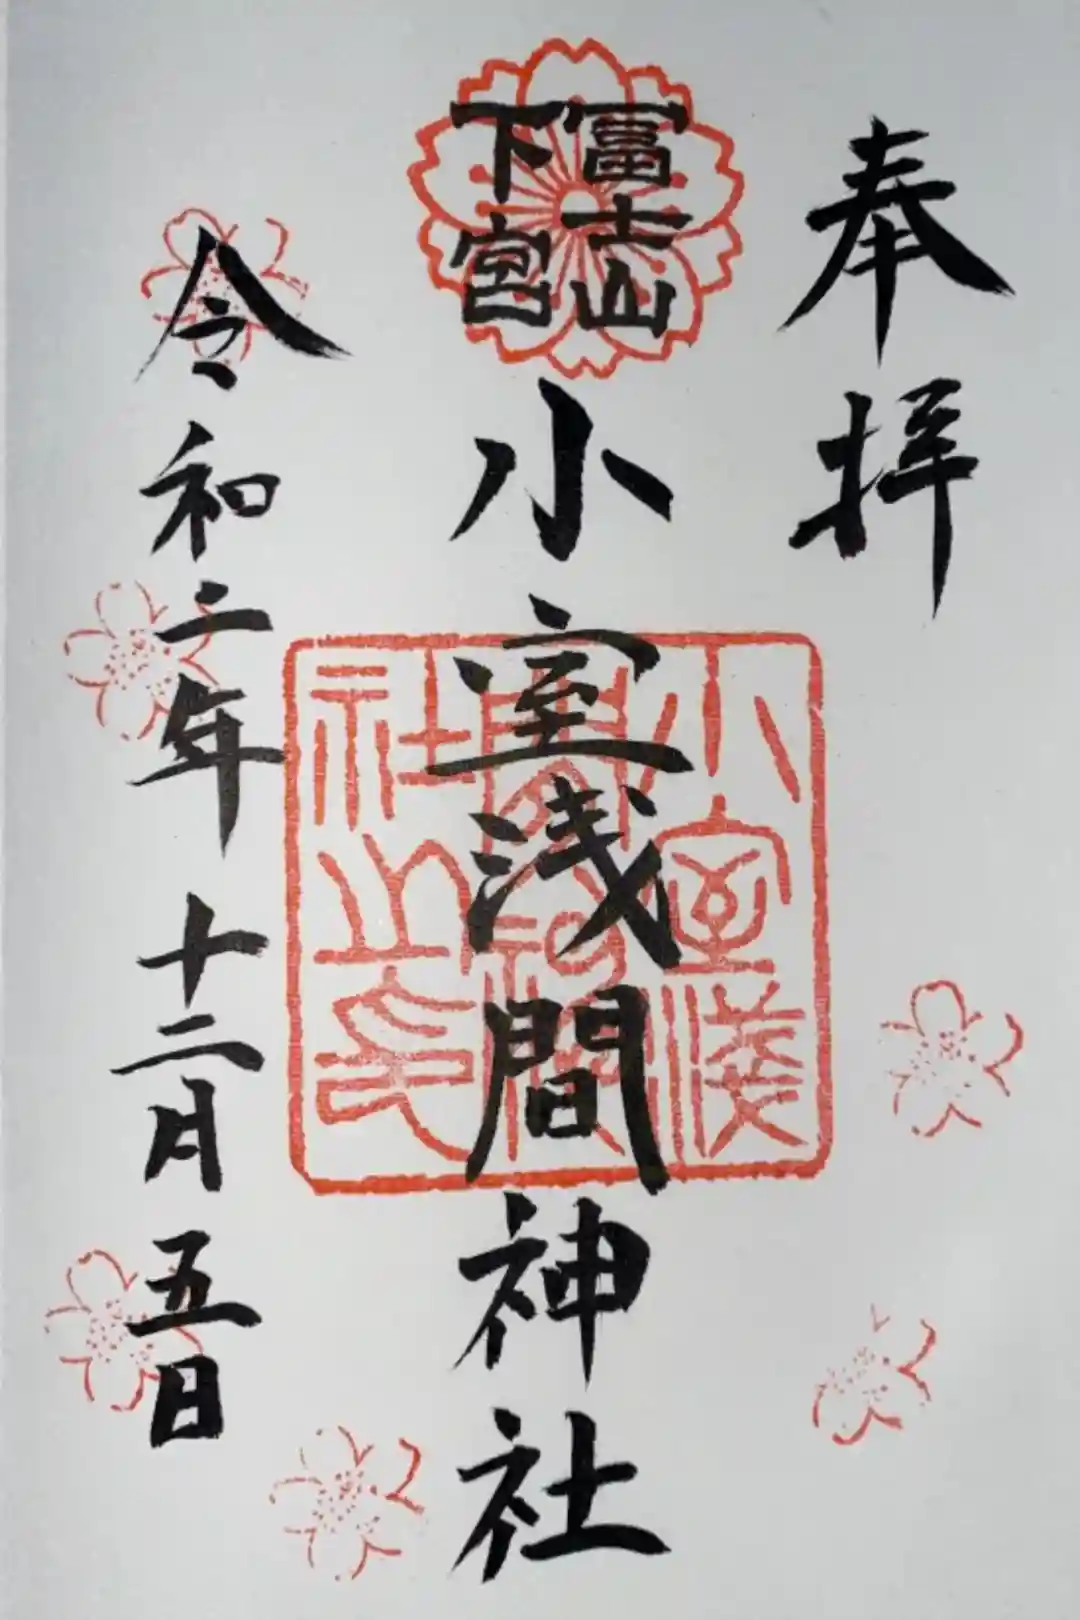 奉拝
冨士山
下宮
小室浅間神社
小室浅
間神社
社之印
令和二年十二月五日